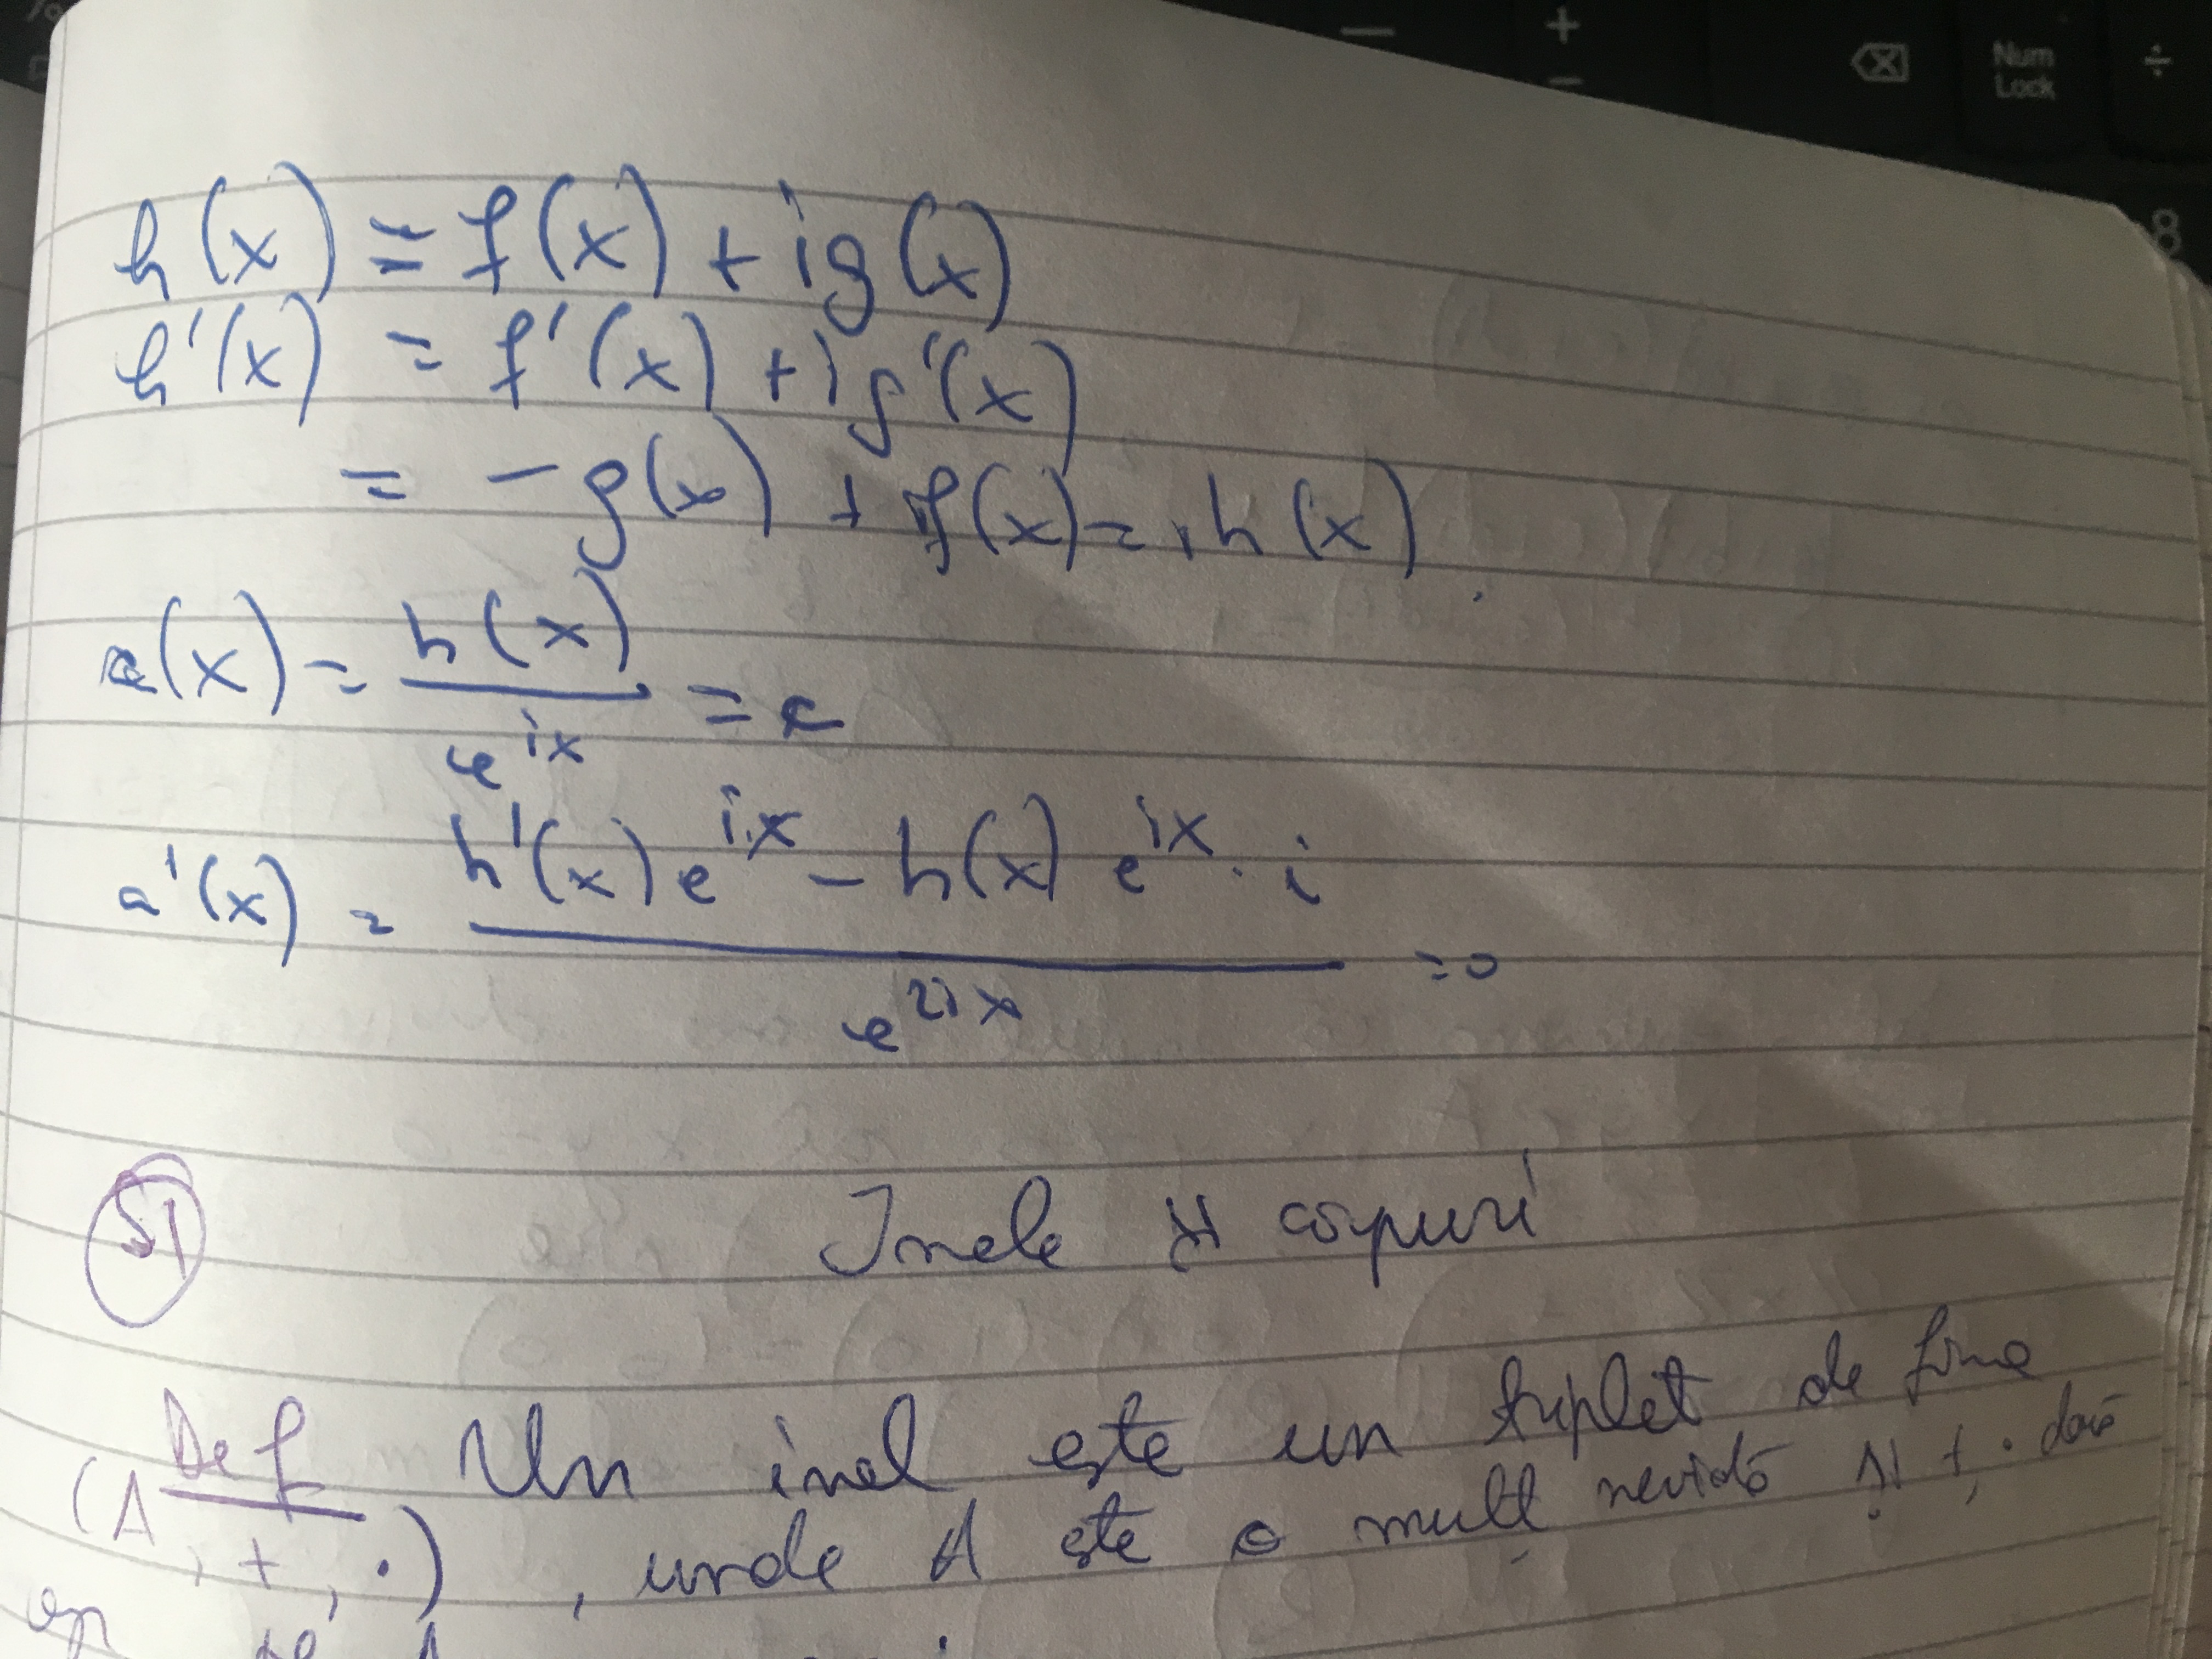 +
—
−
Num
Lock
÷
8
h(x) = f(x) + ig(x)
h'(x) = f'(x) + ig'(x)
= -g(x) + if(x) = ih(x)
a(x) = h(x) / e^{ix} = c
a'(x) = (h'(x) e^{ix} - h(x) e^{ix} · i) / e^{2ix} = 0
S1
Inele și corpuri
Def Un inel este un triplet de forma
(A, +, ·), unde A este o mulț nevidă și +, · două
op